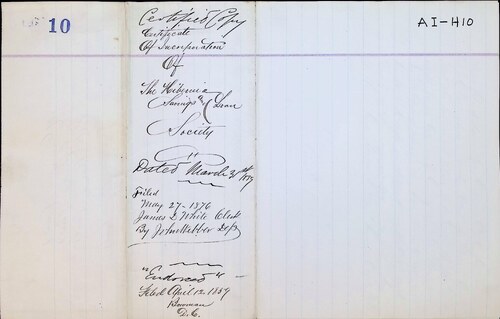 10
AI-H10
Certified Copy
Certificate
Of Incorporation
Of
The Hibernia
Savings & Loan
Society
Dated March
Filed
May 27-1876
James D White Clerk
By John Webber Dep
"Endorsed"
Filed April 12 1859
Bowman
D.C.